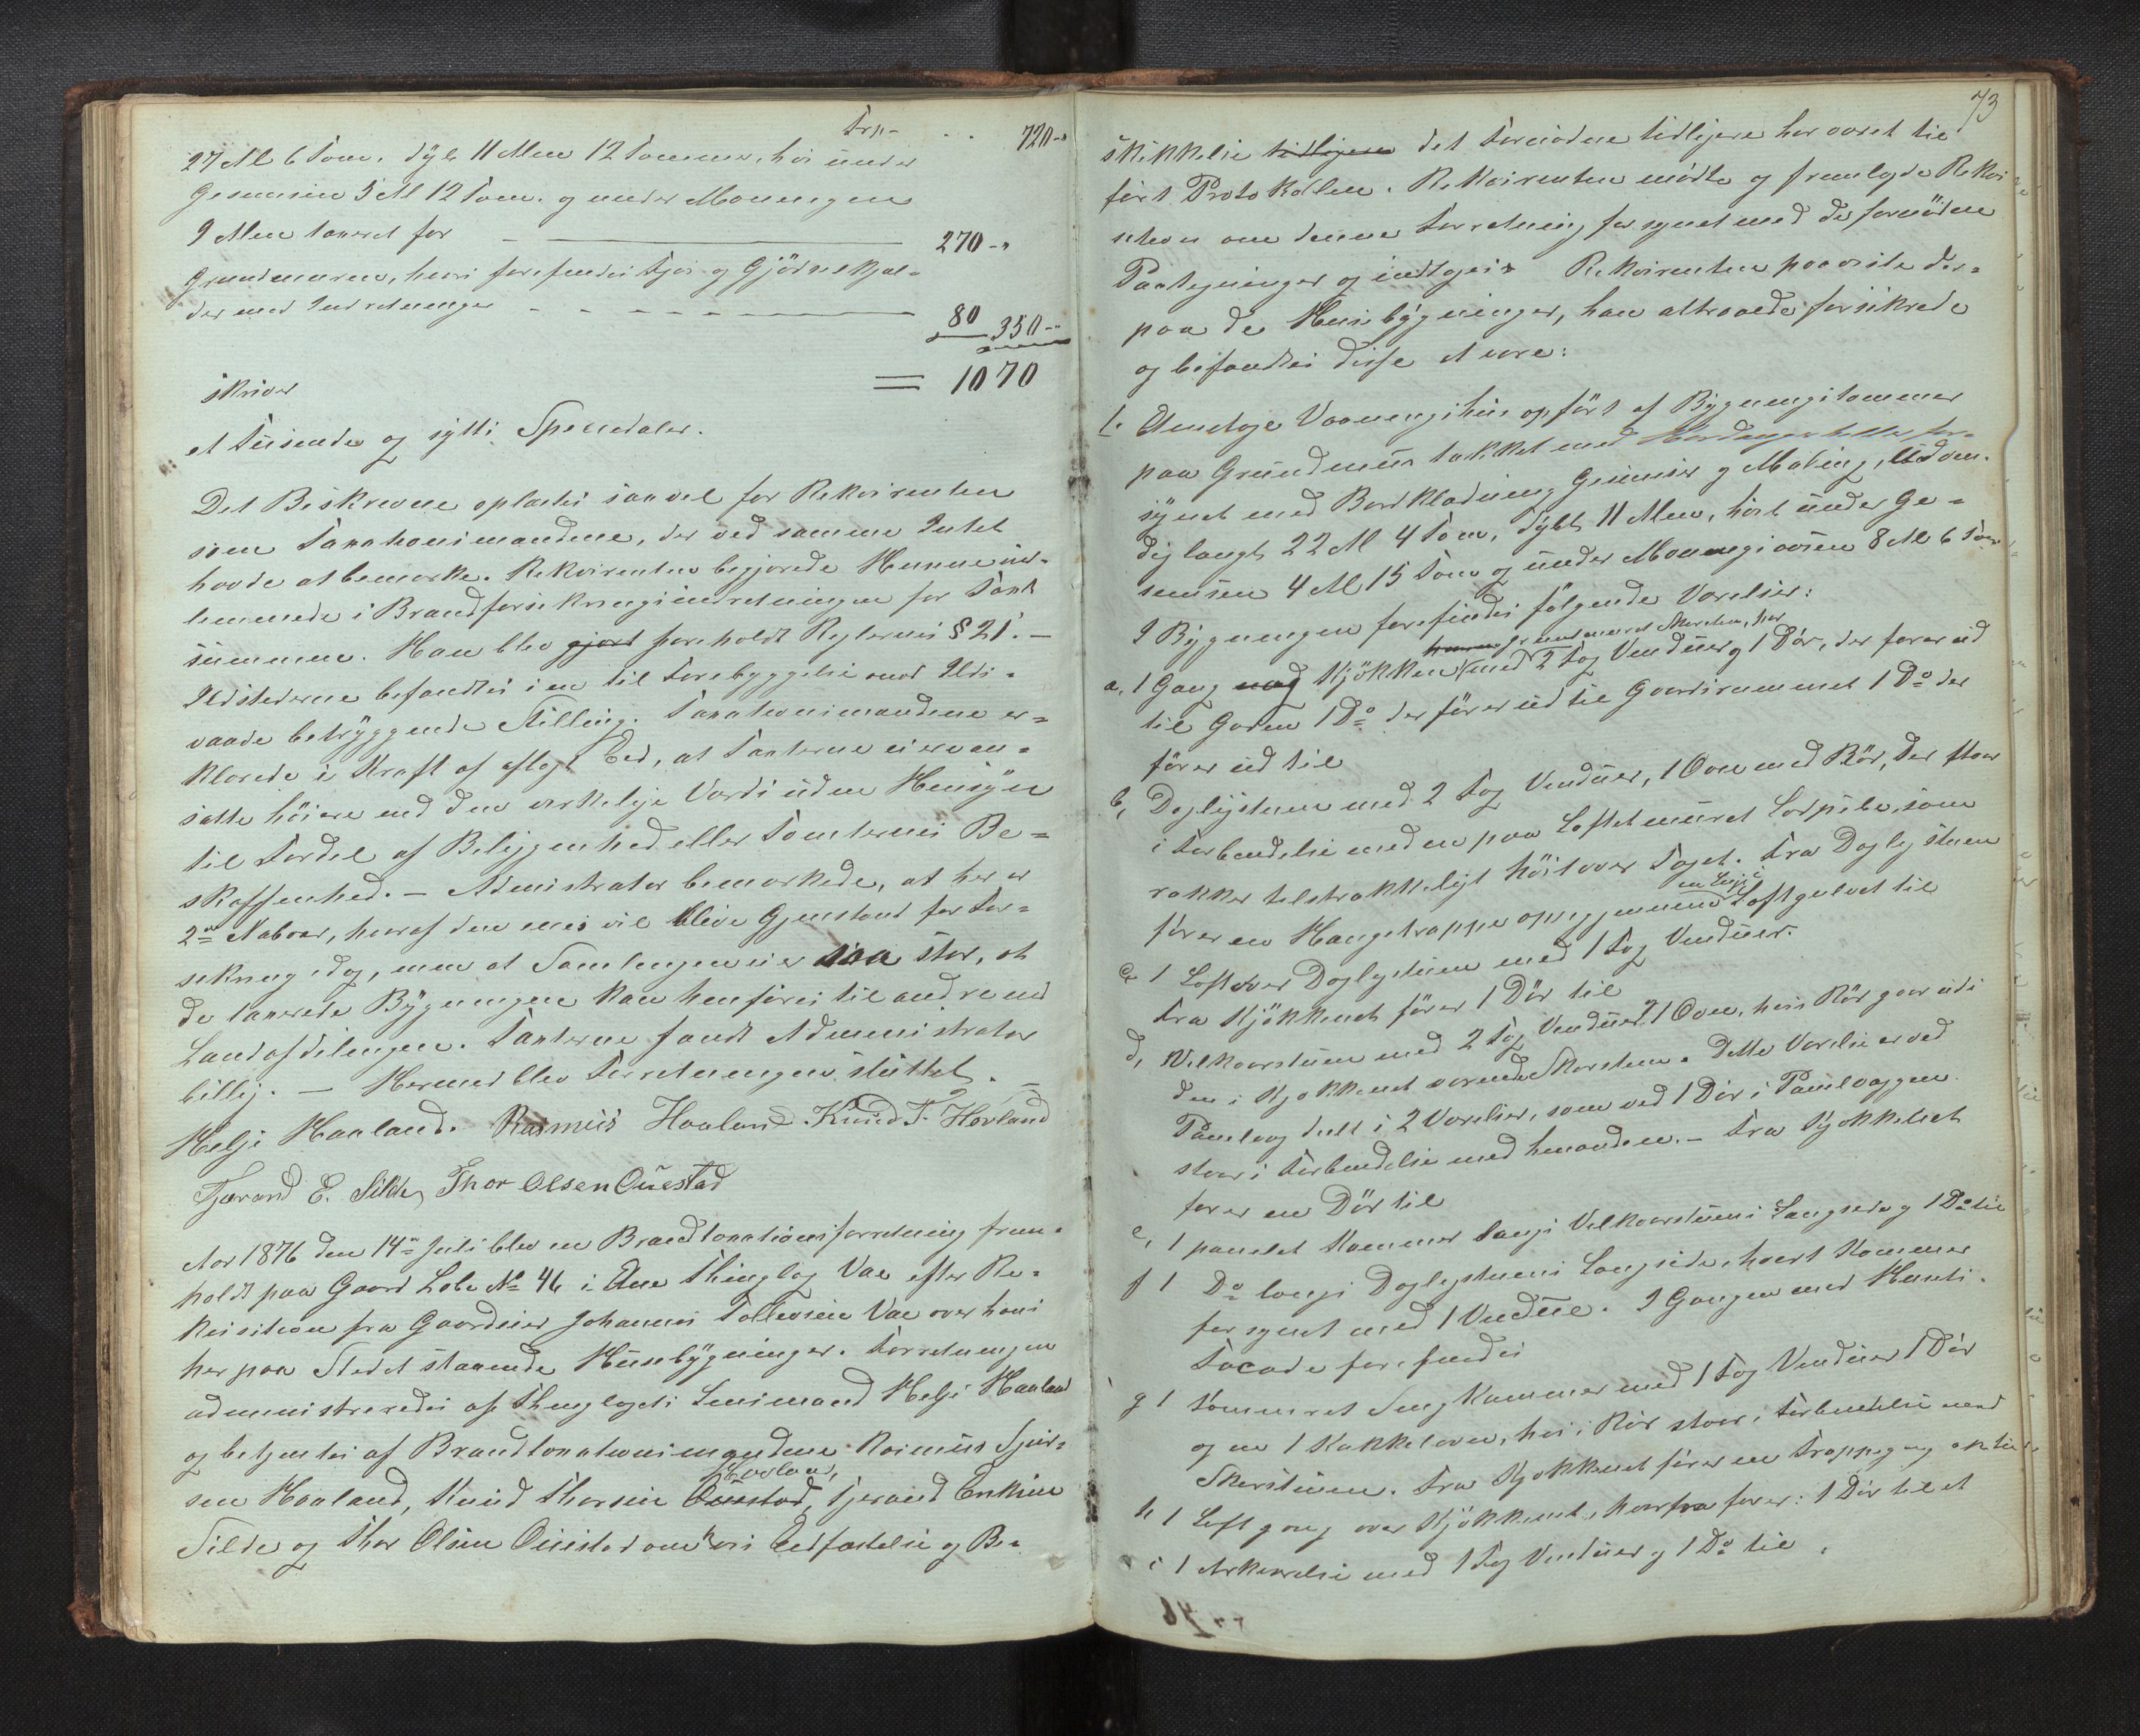 Trp. - . . 720 -"
27 Al 6 Tom. dyb 11 Alen 12 Tommer, höi under
Gesimsen 5 Al 12 Tom. og under Mønningen
9 Alen taxeret for — 270 -"
Grundmuren, hvori forefindes Fjös og Gjödselkjæl-
der med Indretninger - - - - - 80 350 -"
= 1070
skriver
et Tusinde og sytti Speciedaler.
Det Beskrevne oplæstes saavel for Rekvirenten
som Taxationsmændene, der ved samme Intet
havde at bemærke. Rekvirenten begjærede Husene ind-
lemmede i Brandforsikringsindretningen for Taxt
summen. Han blev gjort foreholdt Reglernes § 21. -
Ildstederne befandtes i en til Forebyggelse mod Ilds-
vaade betryggende Stilling. Taxationsmændene er-
klærede i Kraft af aflagt Ed, at Taxterne ei er an-
satte höiere end den virkelige Værdi uden Hensyn
til Fordel af Beliggenhed eller Tomternes Be-
skaffenhed. - Administrator bemærkede, at her er
2de Naboer, hvoraf den enes vil blive Gjenstand for For-
sikring idag, men at Samlingen ei er saa stor, at
de taxerede Bygninger kan henföres til andre end
Landafdelingen. Taxterne fandt Administrator
billig. - Hermed blev Forretningen sluttet. -
Helje Haaland. Rasmus Haaland. Knud T. Hovland
Tjerand E. Silde, Thor Olsen Ouestad
Aar 1876 den 14de Juli blev en Brandtaxationsforretning frem-
holdt paa Gaard Løbe No 46 i Ølne Thinglag Vae efter Re-
kvisition fra Gaardeier Johannes Tollevsen Vae over hans
her paa Stedet staaende Husebygninger. Forretningen
administreredes af Thinglagets Lensmand Helje Haaland
og betjentes af Brandtaxationsmændene Rasmus Sjur-
Hovland,
sen Haaland, Knud Thorsen Ouestad, Tjerand Eriksen
Silde og Thor Olsen Ouestad om hvis Eedfæstelse og Be-
73
skikkelse tidligere det Fornödne tidligere har været til
fört Protokollen. Rekvirenten mödte og fremlagde Rekvi
sition om denne Forretning forsynet med de fornödne
Paategninger og indtages Rekvirenten paaviste der-
paa de Husebygninger, han attraaede forsikrede
og befandtes disse at være:
1. Etendage Vaaningshus opfört af Bygningstømmer
paa Grundmur takket med for-
synet med Bordklædning Gesimser og Maling, Udven-
dig langt 22 Al 4 Tom, dybt 11 Alen, höit under Ge-
simsen 4 Al 15 Tom og under Mønningsaasen 8 Al 6 Tom
I Bygningen forefindes fölgende Værelser:
grundmuret Skorsten, har
a, 1 Gang med Kjökken med 2 Fag Vinduer og 1 Dör, der förer ud
til Gaden 1 Do der förer ud til Gaardsrummet 1 Do der
förer ud til
b, Daglystuen med 2 Fag Vinduer, 1 Ovn med Rör, der staar
i Forbindelse med en paa Loftet muret Lodpibe, som
rækker tilstrækkeligt höit over Taget. Fra Daglystuen
en Luge i
förer en Hængetrappe op gjennem Loftgulvet til
c, 1 Loft over Daglystuen med 1 Fag Vinduer.
Fra Kjökkenet förer 1 Dör til
d, Velkaarstuen med 2 Fag Vinduer og 1 Ovn, hvis Rör gaar ud i
den i Kjøkkenet værende Skorsten. Dette Værelse er ved
Panelvæg deelt i 2 Værelser, som ved 1 Dör i Panelvæggen
staar i Forbindelse med hinanden. - Fra Kjøkkenet
förer en Dör til
e, 1 panelet Kammer langs Velkaarstuens Langside og 1 Do til
f 1 Do langs Daglystuens Langside, hvert Kammer
forsynet med 1 Vindue. I Gangen med Husets
Facade forefindes
g 1 tömmret Sengkammer med 1 Fag Vinduer 1 Dör
og en 1 Kakkelovn, hvis Rör staar i Forbindelse med
Skorstenen. Fra Kjøkkenet förer en Trappegang op til
h 1 Loftgang over Kjökkenet, hvorfra förer: 1 Dör til et
i 1 Arkværelse med 1 Fag Vinduer og 1 Do til